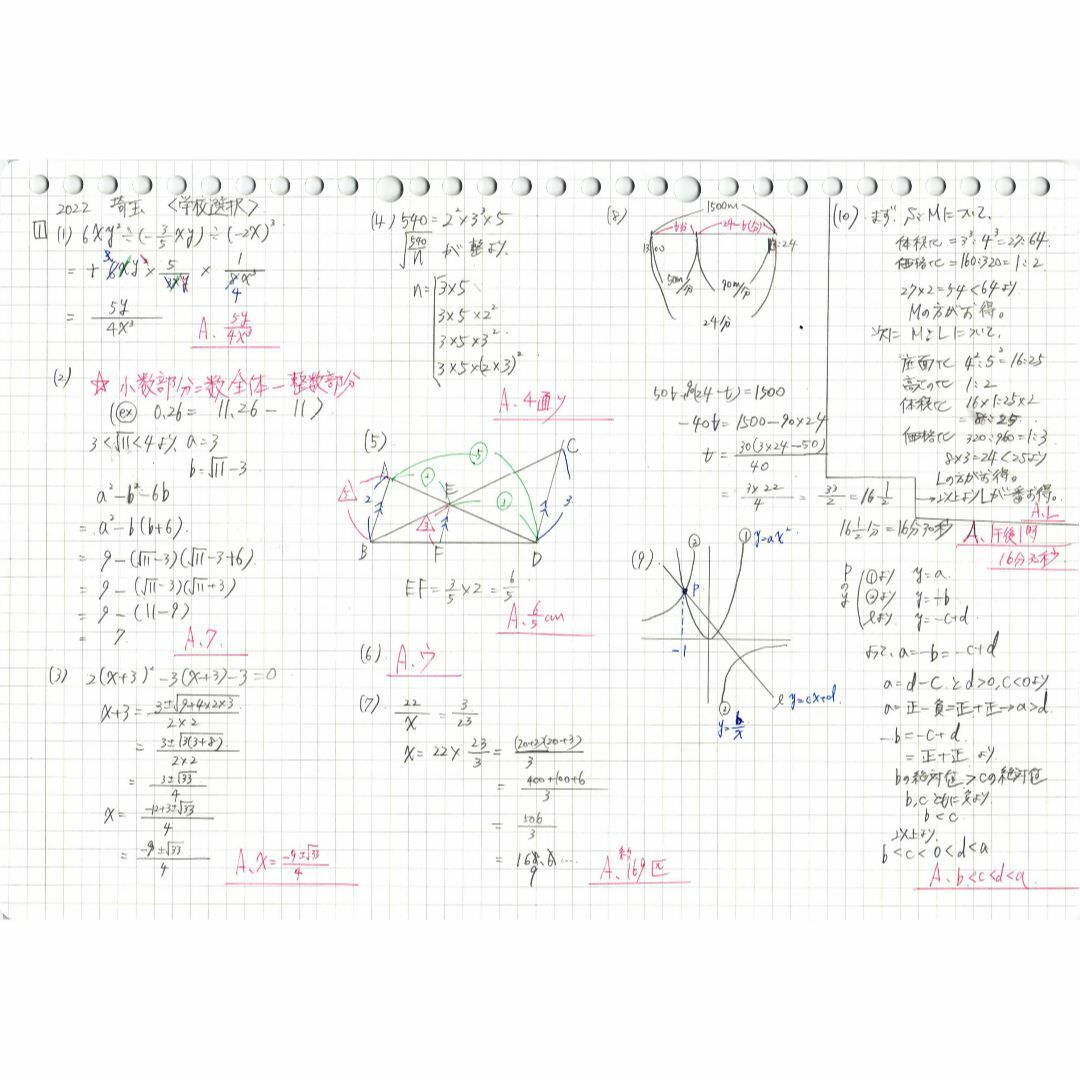 2022 埼玉 <学校選択>
1
(1) 6xy²÷(-3/5xy)÷(-2x)³
= + 6xy² × 5/3xy × 1/8x³
= 5y/4x³
A. 5y/4x³
(2) ☆ 小数部分=数全体-整数部分
(ex) 0.26 = 11.26 - 11)
3<√11<4より a=3
b=√11-3
a²-b²-6b
= a²-b(b+6)
= 9-(√11-3)(√11-3+6)
= 9-(√11-3)(√11+3)
= 9-(11-9)
= 7
A. 7
(3) 2(x+3)²-3(x+3)-3=0
x+3= 3±√9+4×2×3/2×2
= 3±√3(3+8)/2×2
= 3±√33/4
x= -12+3±√33/4
= -9±√33/4
A. x= -9±√33/4
(4) 540=2²×3³×5
√540/n が整より
n= 3×5
3×5×2²
3×5×3²
3×5×(2×3)²
A. 4通り
(5)
A
B
C
D
E
F
2
3
⑤
②
③
EF= 3/5×2= 6/5
A. 6/5cm
(6) A. ウ
(7) 22/x = 3/23
x= 22× 23/3 = (20+2)(20+3)/3
= 400+100+6/3
= 506/3
= 168.6…
9
A. 約169匹
(8)
1500m
t分
24-t(分)
13:00
:24
50m/分
90m/分
24分
50t+90(24-t)=1500
-40t=1500-90×24
t= 30(3×24-50)/40
= 3×22/4 = 33/2 = 16 1/2
16 1/2分=16分30秒
A. 午後1時
16分30秒
(9)
① y=ax²
②
P
-1
ℓ y=cx+d
② y= b/x
Pのy
①より y=a
②より y=-b
ℓより y=-c+d
よって、a=-b=-c+d
a=d-c とd>0,c<0より
a=正-負=正+正→a>d
-b=-c+d
=正+正 より
bの絶対値>cの絶対値
b,cともに負より
b<c
以上より
b<c<0<d<a
A. b<c<d<a
(10) まず SとMについて、
体積比=3³:4³=27:64
価格比=160:320=1:2
27×2=54<64より
Mの方がお得。
次に MとLについて、
底面比 4²:5²=16:25
高さの比 1:2
体積比 16×1:25×2
= 8:25
価格比 320:960=1:3
8×3=24<25より
Lの方がお得。
→以上よりLが一番お得。
A. L